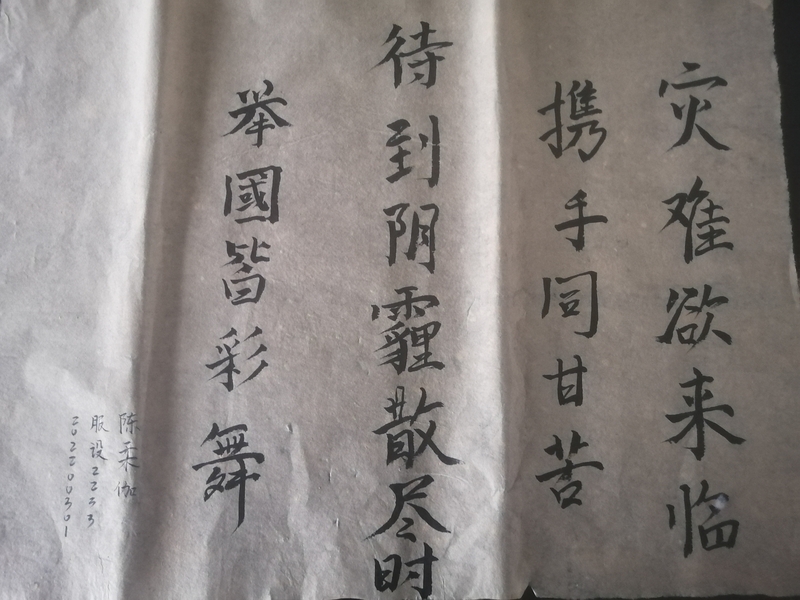 灾难欲来临
携手同甘苦
待到阴霾散尽时
举國皆彩舞
陈柔伽
服设2253
202200301